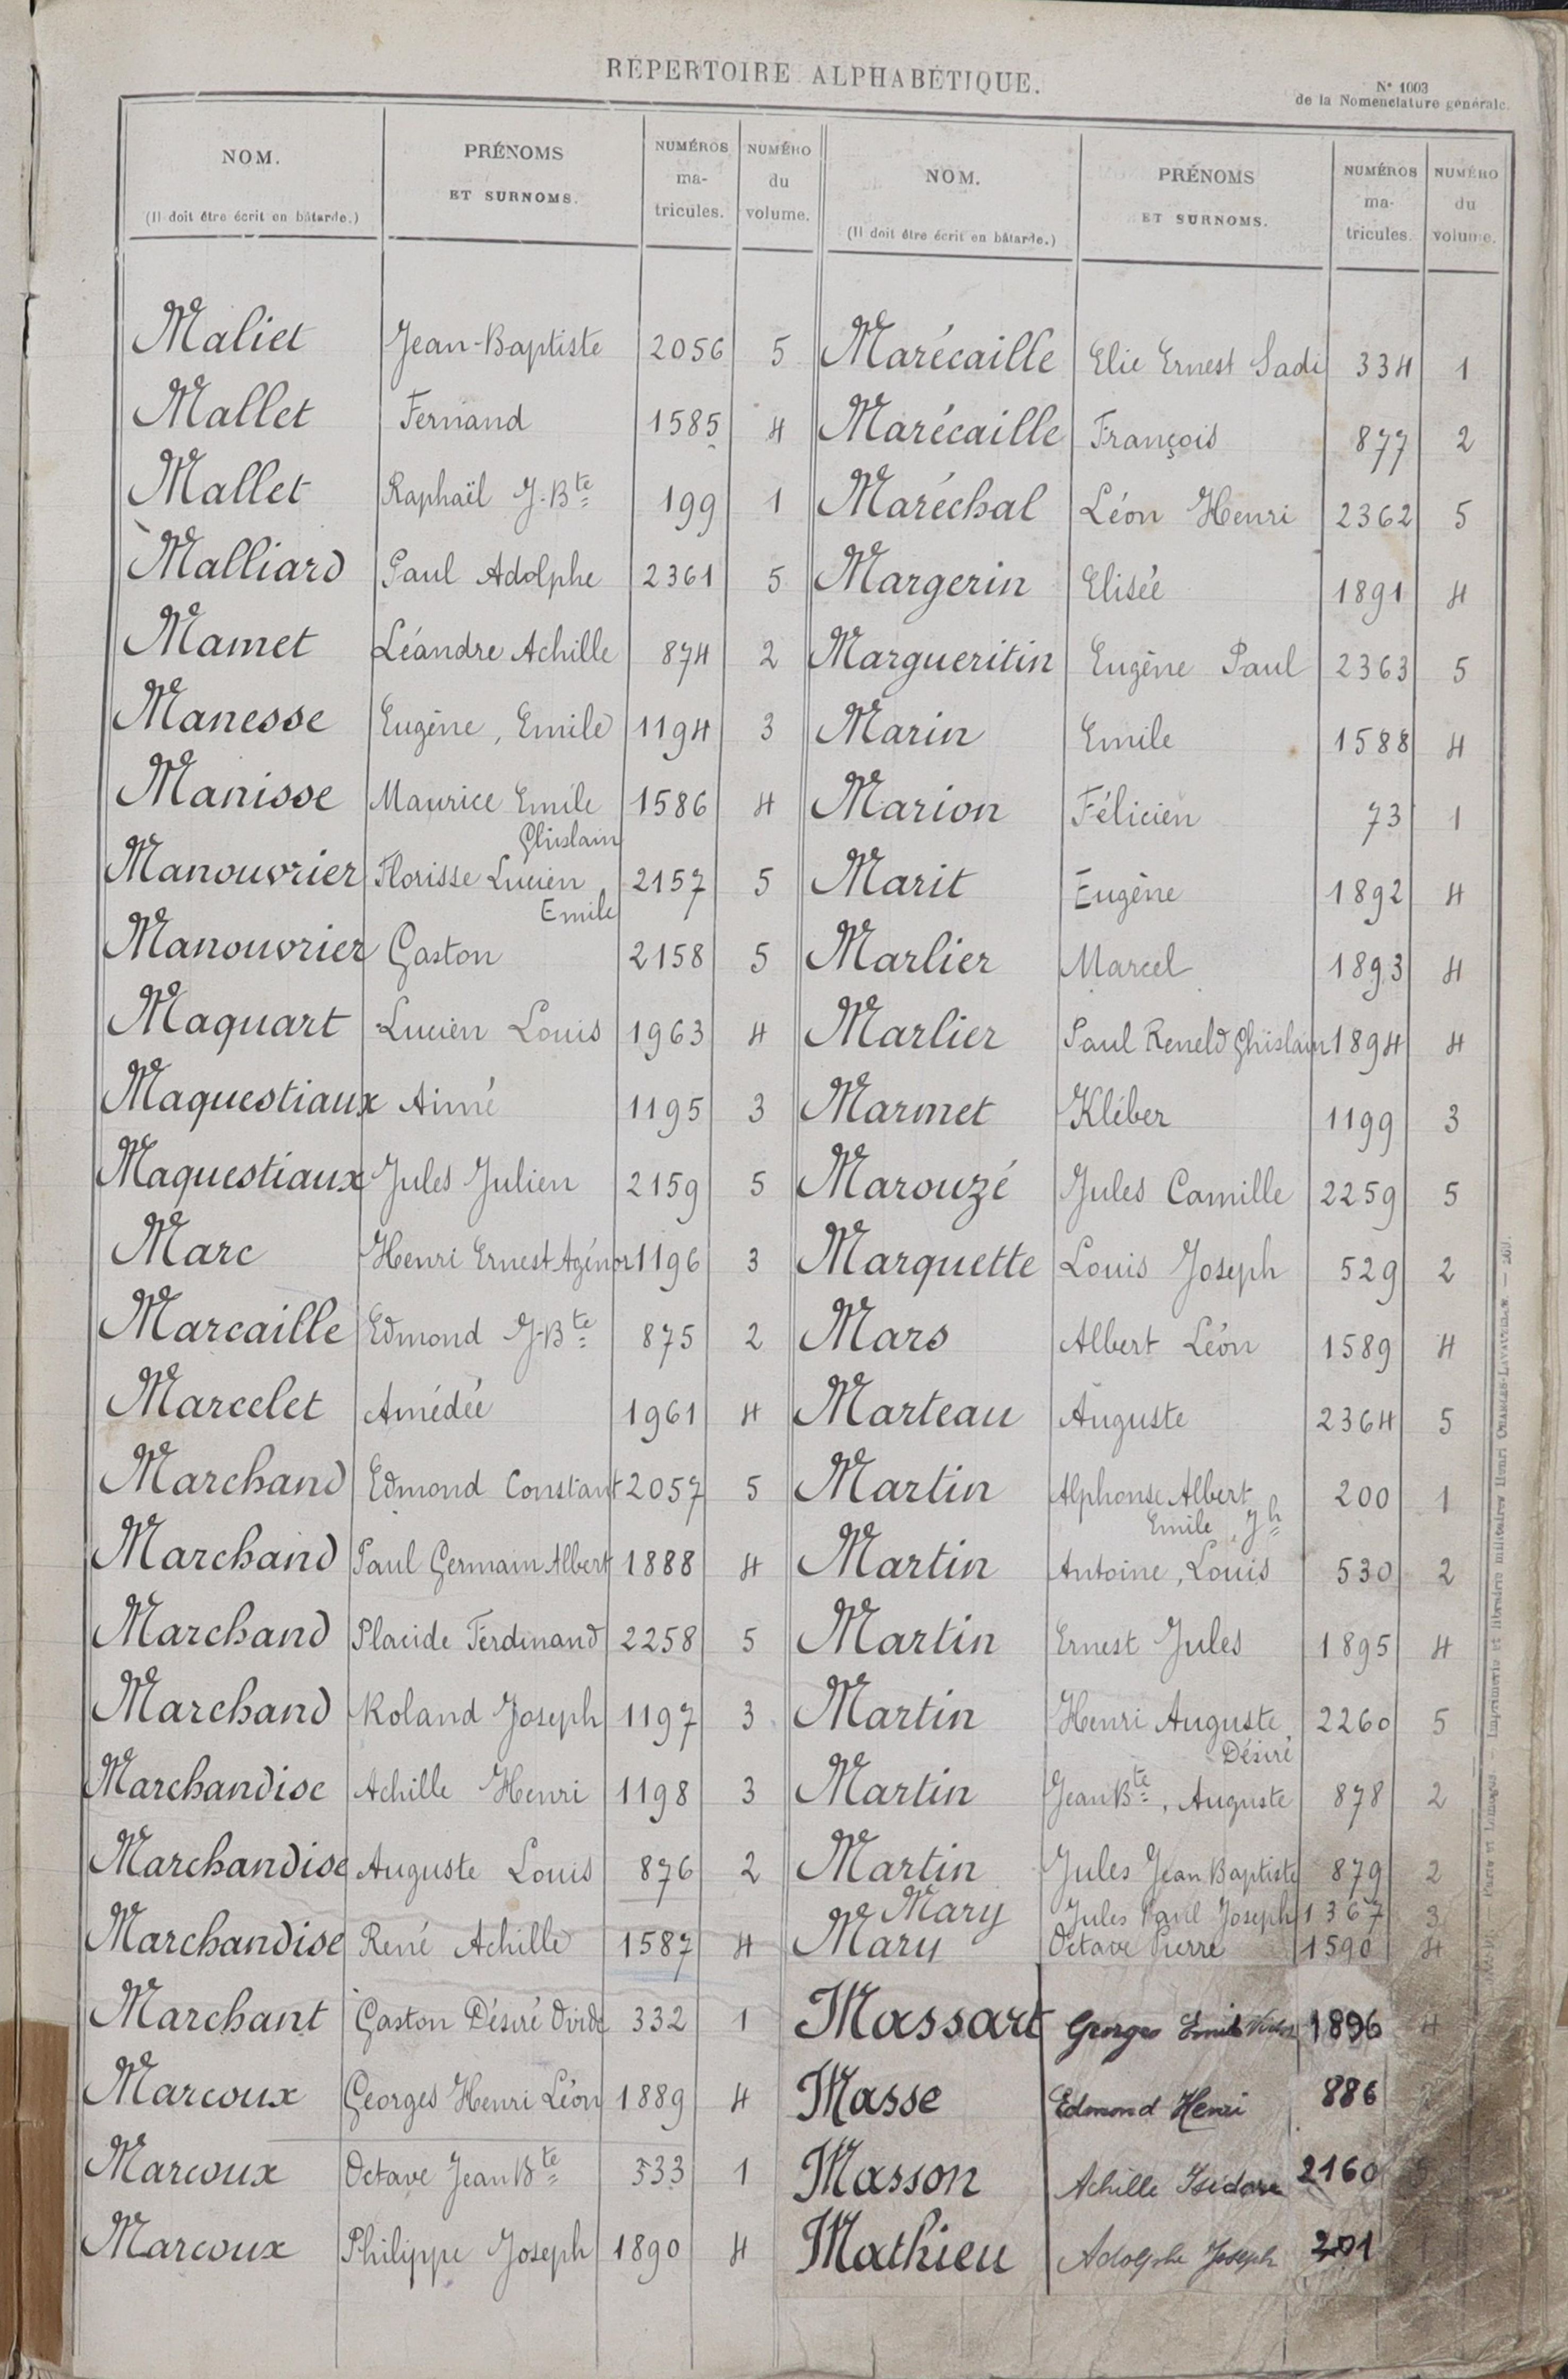 RÉPERTOIRE ALPHABÉTIQUE.
N° 1003
de la Nomenclature générale.
NOM.
(Il doit être écrit en bâtarde.)
PRÉNOMS
ET SURNOMS.
NUMÉROS
ma-
tricules.
NUMÉRO
du
volume.
Maliet Jean-Baptiste 2056 5
Mallet Fernand 1585 4
Mallet Raphaël J. Bte 199 1
Malliard Paul Adolphe 2361 5
Mamet Léandre Achille 874 2
Manesse Eugène, Emile 1194 3
Manisse Maurice Emile 1586 4
Ghislain
Manouvrier Florisse Lucien 2157 5
Emile
Manouvrier Gaston 2158 5
Maquart Lucien Louis 1963 4
Maquestiaux Aimé 1195 3
Maquestiaux Jules Julien 2159 5
Marc Henri Ernest Agénor 1196 3
Marcaille Edmond J-Bte 875 2
Marcelet Amédée 1961 4
Marchand Edmond Constant 2057 5
Marchand Paul Germain Albert 1888 4
Marchand Placide Ferdinand 2258 5
Marchand Roland Joseph 1197 3
Marchandise Achille Henri 1198 3
Marchandise Auguste Louis 876 2
Marchandise René Achille 1587 4
Marchant Gaston Désiré Ovide 332 1
Marcoux Georges Henri Léon 1889 4
Marcoux Octave Jean Bte 333 1
Marcoux Philippe Joseph 1890 4
NOM.
(Il doit être écrit en bâtarde.)
PRÉNOMS
ET SURNOMS.
NUMÉROS
ma-
tricules.
NUMÉRO
du
volume.
Marécaille Elie Ernest Sadi 334 1
Marécaille François 877 2
Maréchal Léon Henri 2362 5
Margerin Elisée 1891 4
Margueritin Eugène Paul 2363 5
Marin Emile 1588 4
Marion Félicien 73 1
Marit Eugène 1892 4
Marlier Marcel 1893 4
Marlier Paul Reneld Ghislain 1894 4
Marmet Kléber 1199 3
Marouzé Jules Camille 2259 5
Marquette Louis Joseph 529 2
Mars Albert Léon 1589 4
Marteau Auguste 2364 5
Martin Alphonse Albert 200 1
Emile Jh
Martin Antoine, Louis 530 2
Martin Ernest Jules 1895 4
Martin Henri Auguste 2260 5
Désiré
Martin Jean Bte, Auguste 878 2
Martin Jules Jean Baptiste 879 2
Mary Jules Paul Joseph 1367 3
Mary Octave Pierre 1590 4
Massart Georges Emile 1896 4
Masse Edmond Henri 886
Masson Achille Isidore 2160
Mathieu Adolphe Joseph 201
Paris et Limoges. — Imprimerie et librairie militaires Henri CHARLES-LAVAUZELLE —